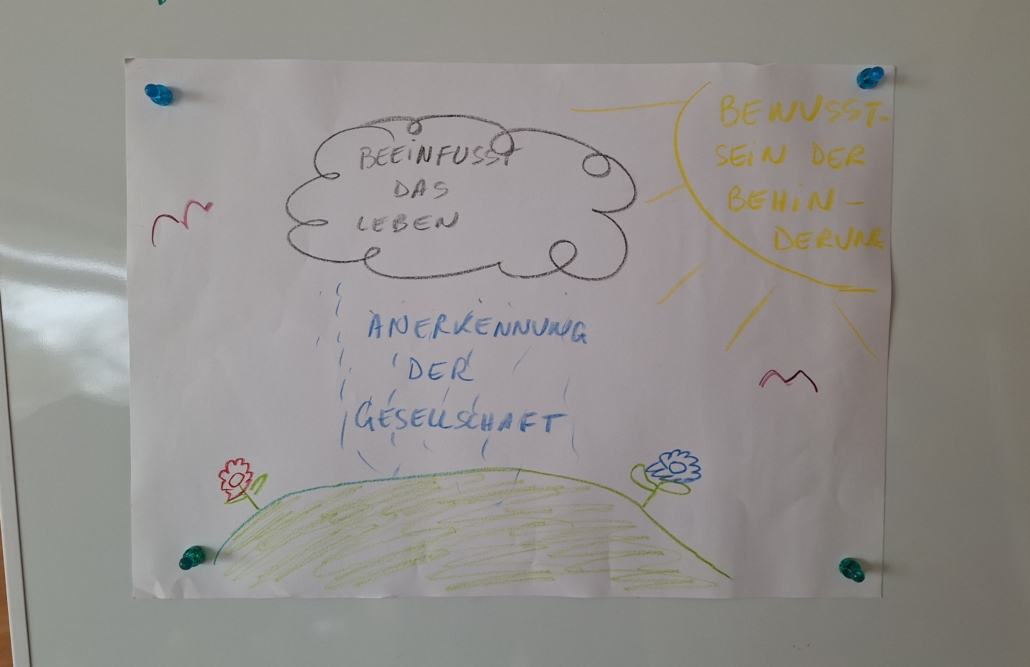 BEEINFUSST
DAS
LEBEN
BEWUSST-
SEIN DER
BEHIN-
DERUNG
ANERKENNUNG
DER
GESELLSCHAFT